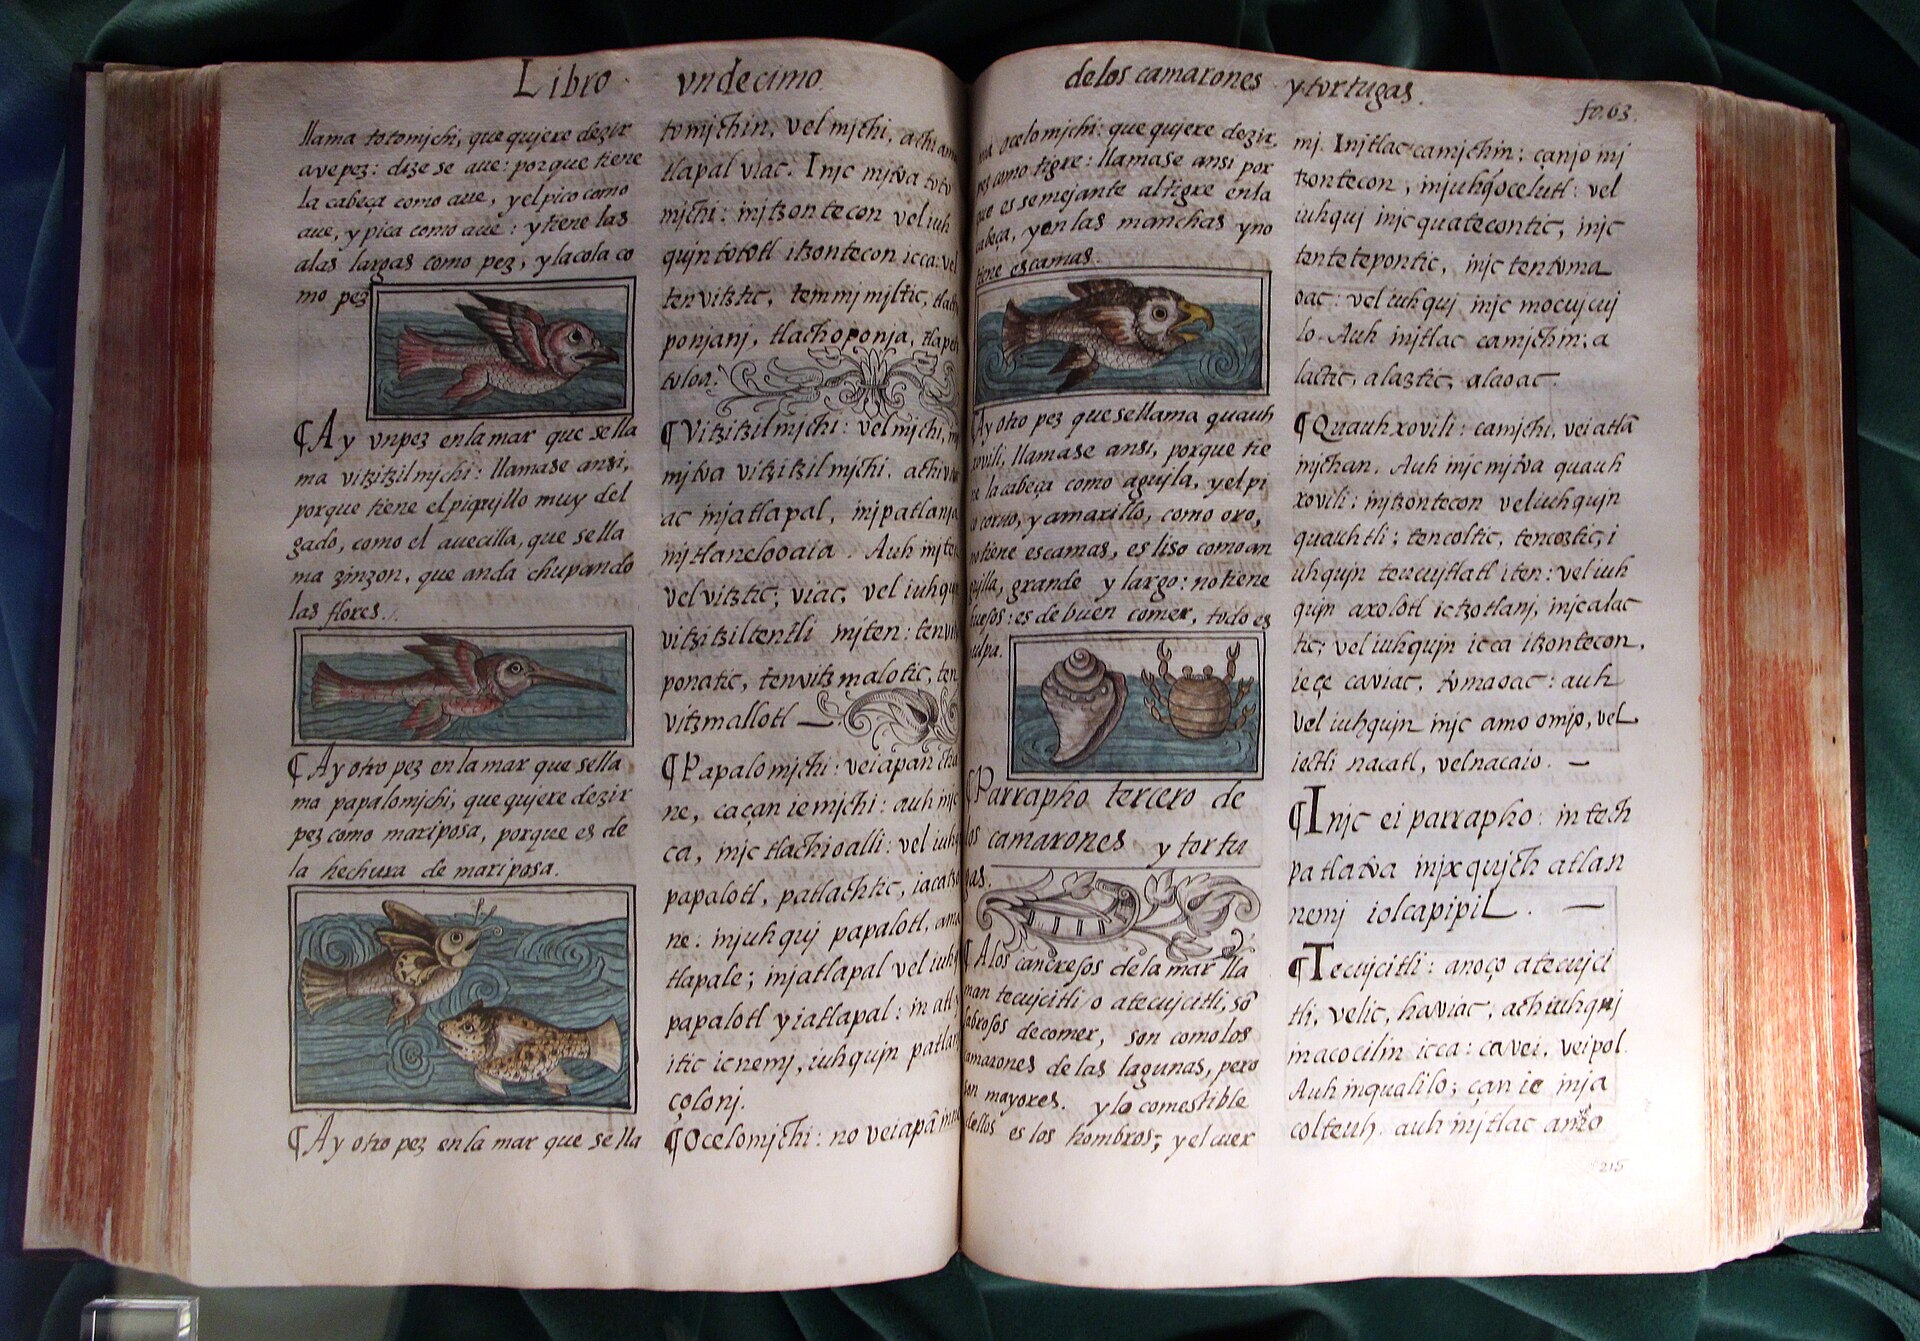 Libro undecimo
llama totomichi, que quiere dezir
ave pez: dize se aue: porque tiene
la cabeça como aue, y el pico como
aue, y pica como aue: y tiene las
alas largas como pez, y la cola co
mo pez
¶ Ay vn pez en la mar que se lla
ma vitzitzilmichi: llamase ansi,
porque tiene el piquillo muy del
gado, como el auecilla, que se lla
ma zinzon, que anda chupando
las flores.
¶ Ay otro pez en la mar que se lla
ma papalomichi, que quiere dezir
pez como mariposa, porque es de
la hechura de mariposa.
¶ Ay otro pez en la mar que se lla
tomjchin, vel mjchi, achi
tlapal viac. Injc mjtva toto
mjchi: injtzontecon vel iuh
quin tototl itzontecon icca: vel
tenvitztic, temmjmjltic,
ponjanj, tlachoponja,
tuloa.
¶ Vitzitzilmjchi: vel mjchi,
mjtva vitzitzilmjchi. achi
ac injatlapal, injpatlanja
mjtlanelooaia. Auh injten
vel vitztic, viac, vel iuhqujn
vitzitziltentli injten:
ponatic, tenvitzmalotic, ten
vitzmallotl —
¶ Papalomjchi: veiapan
ne, caçan ie mjchi: auh injc
ca, injc tlachioalli: vel iuhq
papalotl, patlachtic,
ne: injuhquj papalotl,
tlapale; injatlapal vel iuhq
papalotl yiatlapal: in atl y
itic icnemj, iuhqujn patlan
colonj.
¶ Ocelomjchi: no veiapā
de los camarones y tortugas. fo. 63.
ma ocelomichi: que quiere dezir,
pez como tigre: llamase ansi por
que es semejante al tigre en la
cabeça, y en las manchas y no
tiene escamas.
Ay otro pez que se llama quauh
xovili, llamase ansi, porque tie
ne la cabeça como aguila, y el pi
co corvo, y amarillo, como oro,
no tiene escamas, es liso como an
guilla, grande y largo: no tiene
huesos: es de buen comer, todo es
pulpa.
¶ Parrapho tercero de
los camarones y tortu
gas.
¶ A los cancrejos de la mar lla
man tecujcitli o atecujcitli, sō
sabrosos de comer, son como los
camarones de las lagunas, pero
son mayores. y lo comestible
dellos es los hombros; y el cuer
mj. Injtlac camjchin: canjo inj
tzontecon, injuhq̄ ocelutl: vel
iuhquj injc quatecontic, injc
tentetepontic, injc tentoma
oac: vel iuhquj injc mocujcuj
lo. Auh injtlac camjchin: a
lactic, alaztic, alaoac.
¶ Quauhxovili: camjchi, vei atlā
mjchan. Auh injc mjtva quauh
xovili: injtzontecon vel iuhqujn
quauhtli; tencoltic, tencoztic, i
uhqujn teucujtlatl iten: vel iuh
qujn axolotl ictzotlanj, injc alac
tic; vel iuhqujn icca itzontecon,
ieçe caviac, tomaoac: auh
vel iuhqujn injc amo omjo, vel
iectli nacatl, vel nacaio. —
¶ Injc ei parrapho: intech
patlatva injxqujch atlan
nemj iolcapipil. —
¶ Tecujcitli: anoço atecujci
tli, velic, haviac, achiuhquj
inacocilin icca: ca vei, veipol.
Auh inqualilo; çan ie inja
colteuh. auh injtlac amo
215